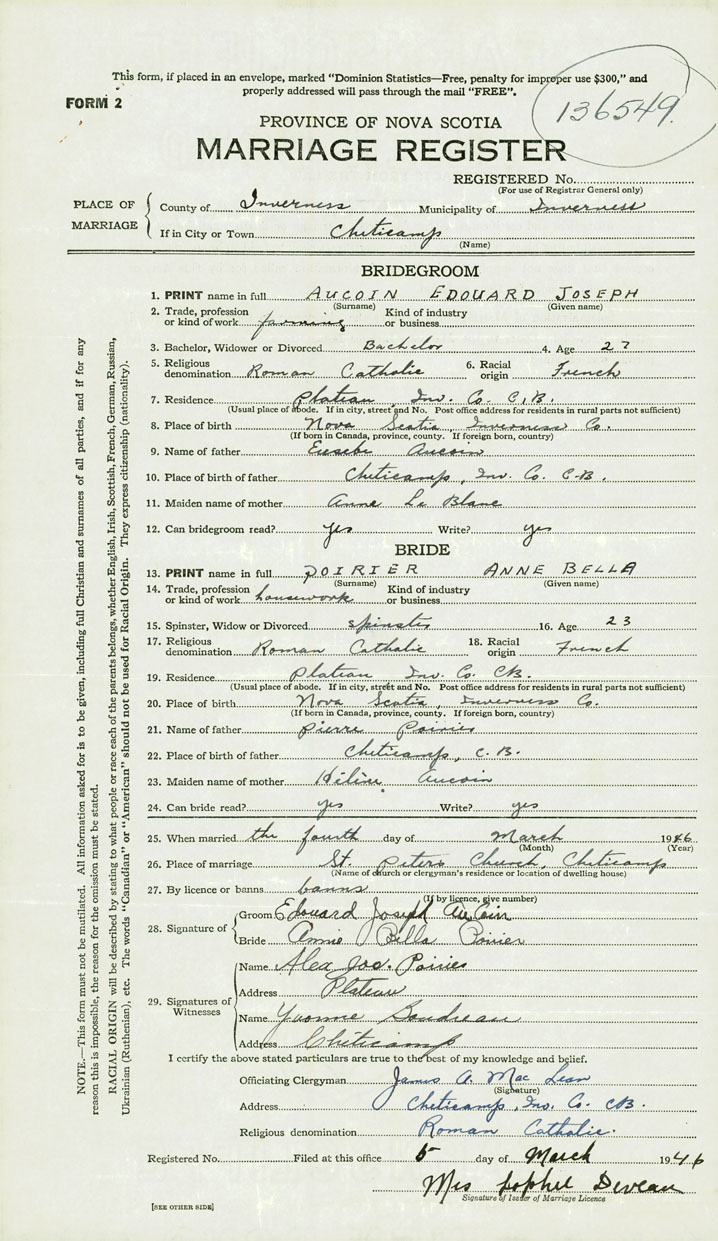 This form, if placed in an envelope, marked "Dominion Statistics—Free, penalty for improper use $300," and
properly addressed will pass through the mail "FREE".
FORM 2
136549
PROVINCE OF NOVA SCOTIA
MARRIAGE REGISTER
REGISTERED No.
(For use of Registrar General only)
PLACE OF MARRIAGE
County of Inverness Municipality of Inverness
If in City or Town Cheticamp
(Name)
BRIDEGROOM
1. PRINT name in full AUCOIN EDOUARD JOSEPH
(Surname) (Given name)
2. Trade, profession or kind of work farming Kind of industry or business
3. Bachelor, Widower or Divorced Bachelor 4. Age 27
5. Religious denomination Roman Catholic 6. Racial origin French
7. Residence Plateau Inv. Co. C.B.
(Usual place of abode. If in city, street and No. Post office address for residents in rural parts not sufficient)
8. Place of birth Nova Scotia, Inverness Co.
(If born in Canada, province, county. If foreign born, country)
9. Name of father Eusebe Aucoin
10. Place of birth of father Cheticamp, Inv. Co. C-B.
11. Maiden name of mother Anne Le Blanc
12. Can bridegroom read? yes Write? yes
BRIDE
13. PRINT name in full POIRIER ANNE BELLA
(Surname) (Given name)
14. Trade, profession or kind of work housework Kind of industry or business
15. Spinster, Widow or Divorced spinster 16. Age 23
17. Religious denomination Roman Catholic 18. Racial origin French
19. Residence Plateau Inv. Co. CB.
(Usual place of abode. If in city, street and No. Post office address for residents in rural parts not sufficient)
20. Place of birth Nova Scotia, Inverness Co.
(If born in Canada, province, county. If foreign born, country)
21. Name of father Pierre Poirier
22. Place of birth of father Cheticamp, C.B.
23. Maiden name of mother Hélène Aucoin
24. Can bride read? yes Write? yes
25. When married the fourth day of March 1946
(Month) (Year)
26. Place of marriage St. Peters Church, Cheticamp
(Name of church or clergyman's residence or location of dwelling house)
27. By licence or banns banns
(If by licence, give number)
28. Signature of
Groom Edouard Joseph AuCoin
Bride Annie Bella Poirier
29. Signatures of Witnesses
Name Alex Joe. Poirier
Address Plateau
Name Yvonne Boudreau
Address Cheticamp
I certify the above stated particulars are true to the best of my knowledge and belief.
Officiating Clergyman James A. Mac Lean
(Signature)
Address Cheticamp, Inv. Co. CB.
Religious denomination Roman Catholic.
Registered No. Filed at this office 5 day of March 1946
Mrs Sophie Deveau
Signature of Issuer of Marriage Licence
[SEE OTHER SIDE]
NOTE.—This form must not be mutilated. All information asked for is to be given, including full Christian and surnames of all parties, and if for any
reason this is impossible, the reason for the omission must be stated.
RACIAL ORIGIN will be described by stating to what people or race each of the parents belongs, whether English, Irish, Scottish, French, German, Russian,
Ukrainian (Ruthenian), etc. The words "Canadian" or "American" should not be used for Racial Origin. They express citizenship (nationality).